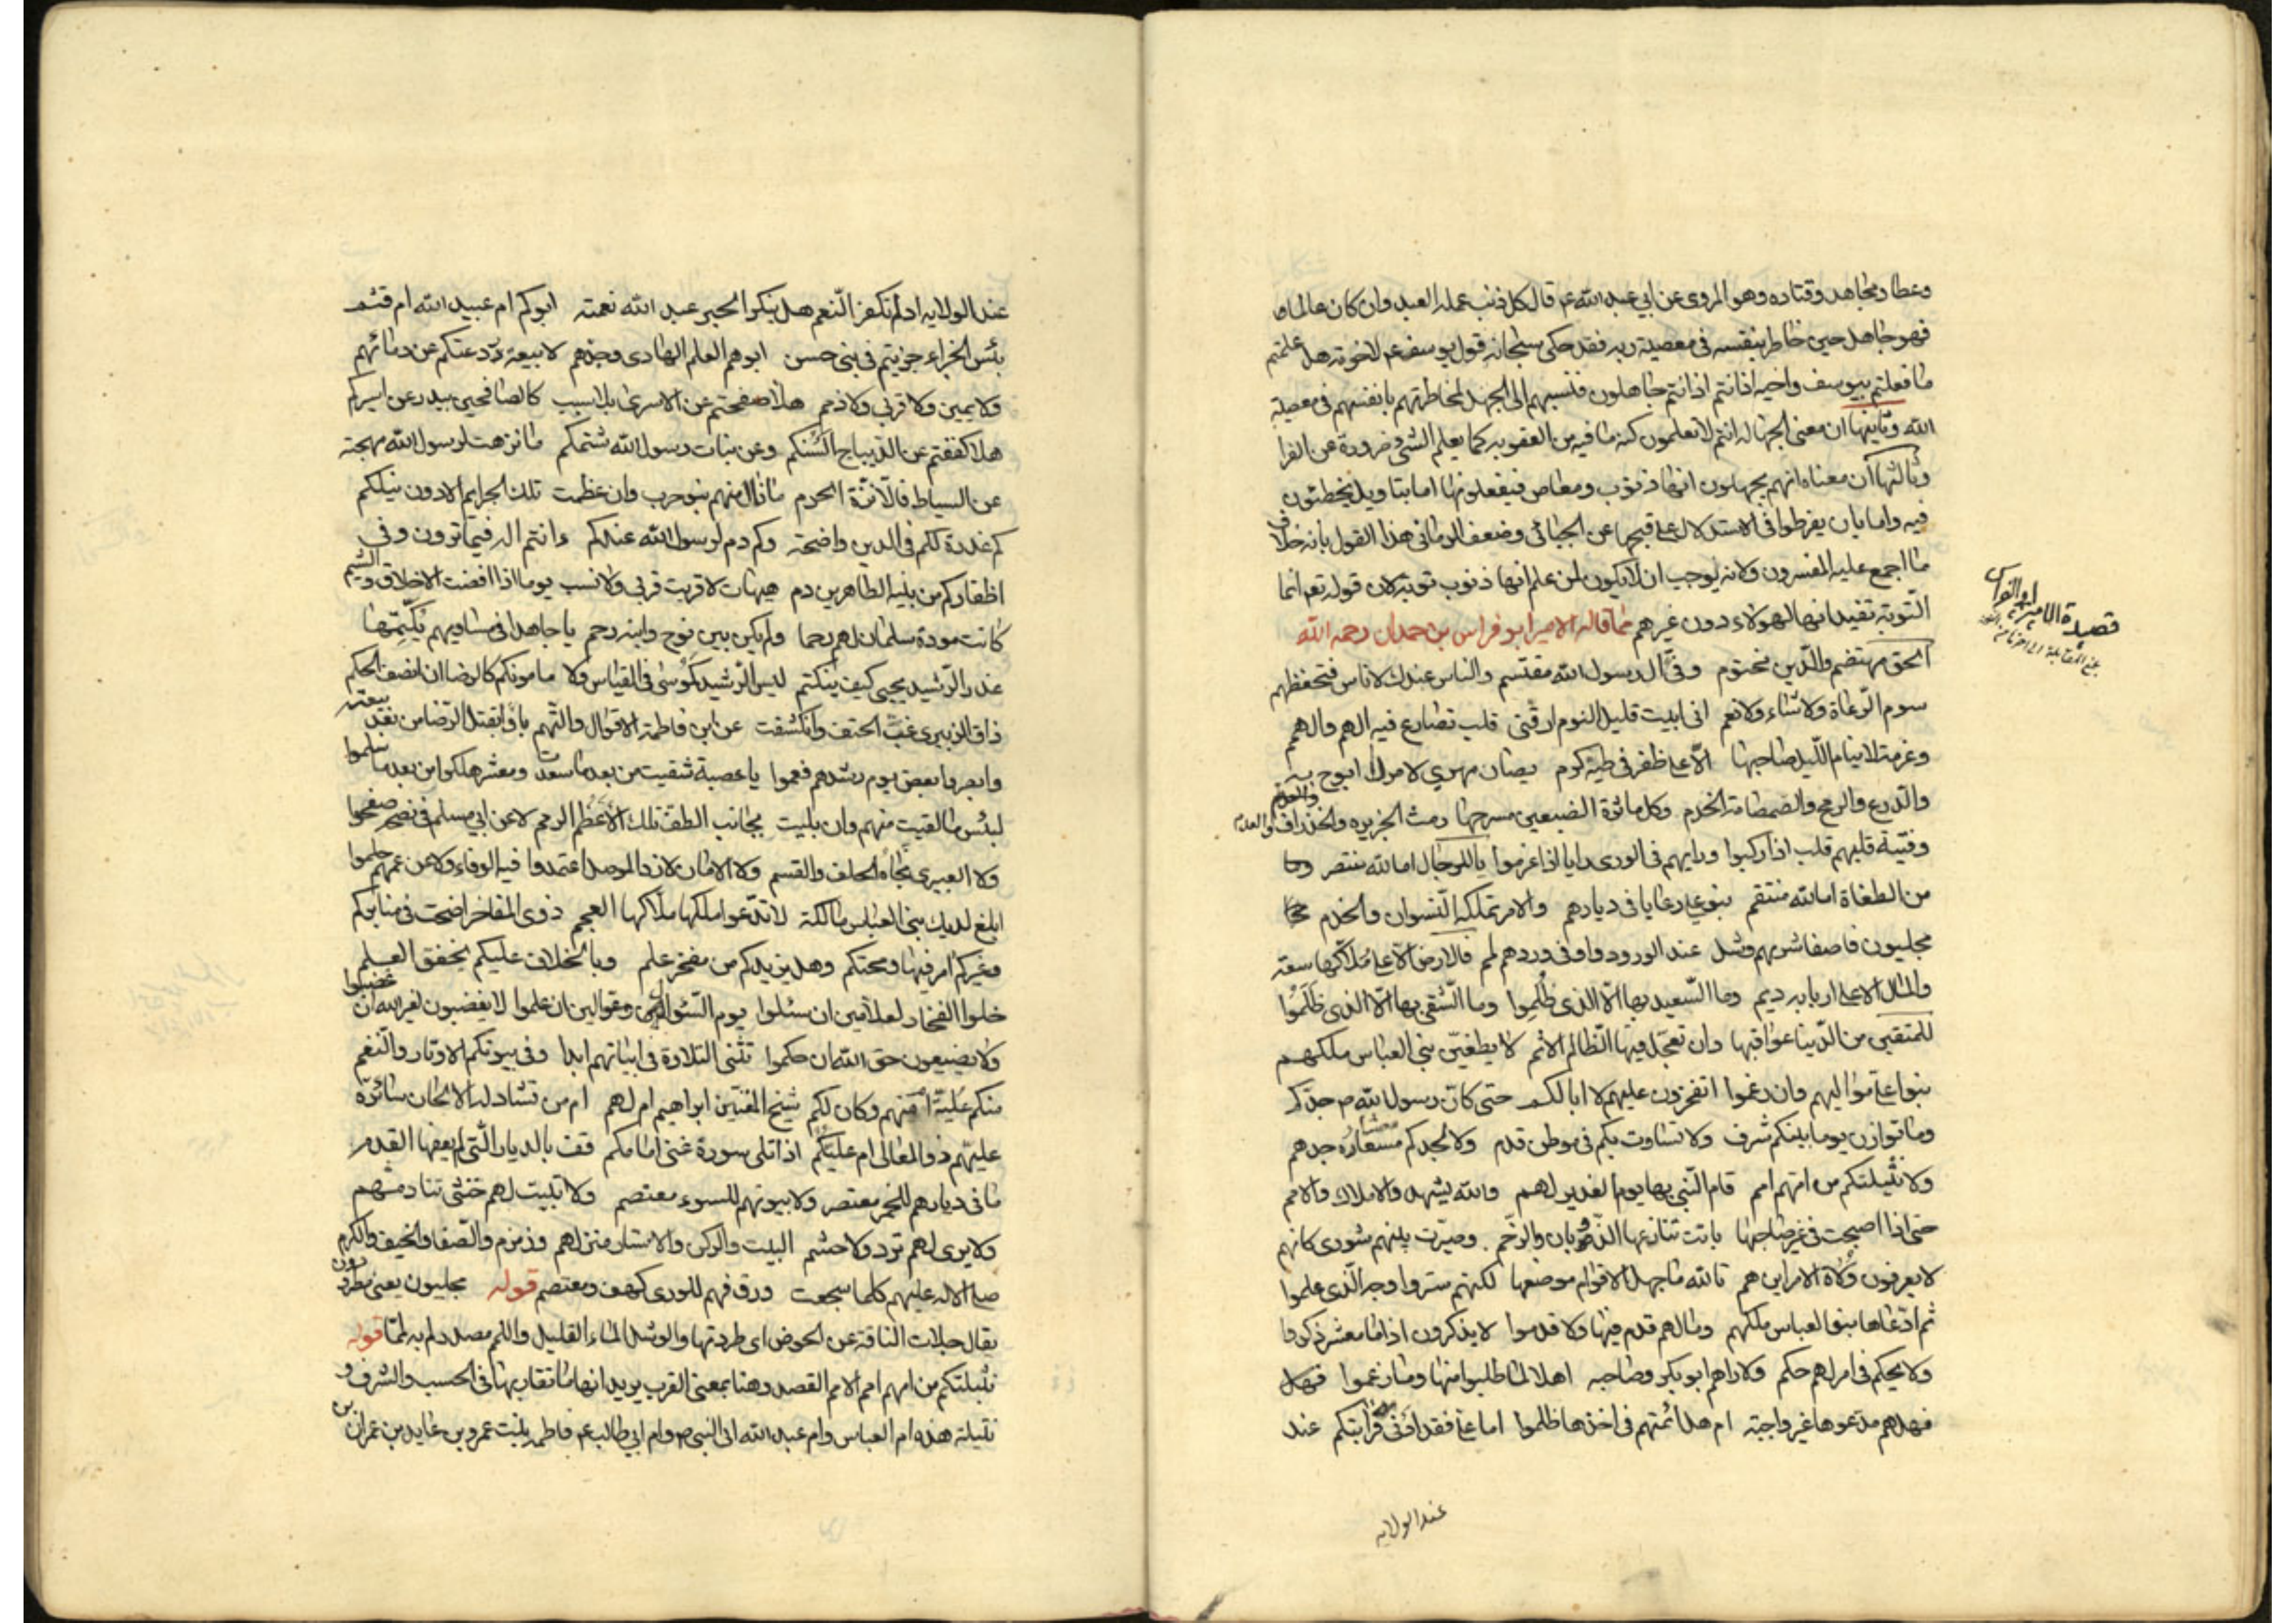 وعطا ومجاهد وقتاده وهو المروى عن ابي عبد الله ع قال كل ذنب عمله العبد وان كان عالما
فهو جاهل حين خاطر بنفسه في معصية ربه فقد حكى سبحانه قول يوسف ع لاخوته هل علمتم
ما فعلتم بيوسف واخيه اذ انتم جاهلون فنسبهم الى الجهل لمخاطرتهم بانفسهم في معصية
الله وثانيها ان معنى الجهاله انتم لا تعلمون كنه ما فيه من العقوبه كما يعلم الشئ ضرورة عن الفرا
وثالثها ان معناه انهم يجهلون انها ذنوب ومعاص فيفعلونها اما بتاويل يخطئون
فيه واما بان يفرطوا في الاستدلال على قبحها عن الجبائى وضعف الرمانى هذا القول بانه خلاف
ما اجمع عليه المفسرون ولانه يوجب ان لا يكون لمن علم انها ذنوب توبة لان قوله تع انما
التوبة تفيد انها لهولاء دون غيرهم مما قاله الامير ابو فراس بن حمدان رحمه الله
الحق مهتضم والدين مخترم وفئ آل رسول الله مقتسم والناس عندك لا ناس فتحفظهم
سوم الرعاة ولا شاء ولا نعم انى ابيت قليل النوم ارقنى قلب تصارع فيه الهم والهمم
وعزمة لا ينام الليل صاحبها الا على ظفر في طيه كرم يصان مهري لامر لا ابوح به
والدرع والرمح والصمصامة الخذم وكل مائرة الضبعين مسرحها رمث الجزيره والخذراف والعنم
وفتية قلبهم قلب اذا ركبوا ورايهم في الورى رايا اذا عزموا يا للرجال اما لله منتصر
من الطغاة اما لله منتقم بنو على رعايا في ديارهم والامر تملكه النسوان والخدم
محليون فاصفا شربهم وشل عند الورود واوفى وردهم لمم فالارض الا على ملاكها سعة
والمال الا على اربابه ديم وما السعيد بها الا الذى ظلموا وما الشقي بها الا الذى ظلموا
للمتقين من الدنيا عواقبها وان تعجل فيها الظالم الاثم لا يطغين بني العباس ملكهم
بنو على مواليهم وان رغموا اتفخرون عليهم لا ابا لكم حتى كان رسول الله ص جدكم
وما توازن يوما بينكم شرف ولا تساوت بكم في موطن قدم ولا لجدكم مسعاة جدهم
ولا نثيلتكم من امهم امم قام النبي بها يوم الغدير لهم والله يشهد والاملاك والامم
حتى اذا اصبحت في غير صاحبها باتت تنازعها الذؤبان والرخم وصيرت بينهم شورى كانهم
لا يعرفون ولاة الامر اين هم تالله ما جهل الاقوام موضعها لكنهم ستروا وجه الذى علموا
ثم ادعاها بنو العباس ملكهم وما لهم قدم فيها ولا قدموا لا يذكرون اذا ما معشر ذكروا
ولا يحكم في امر لهم حكم ولا راهم ابو بكر وصاحبه اهلا لما طلبوا منها وما زعموا فهل
فهل هم مدعوها غير واجبة ام هل ائمتهم في اخذها ظلموا اما على فقد ادنى قرابتكم عند
عند الولايه
قصيدة الامير ابو الفراس
عند الولايه اذ لم تكفر النعم هل ينكر الحبر عبد الله نعمته ابوكم ام عبيد الله ام قثم
بئس الجزاء جزيتم في بني حسن ابوهم العلم الهادى وجدهم لا بيعة ردعتكم عن دمائهم
ولا يمين ولا قربى ولا ذمم هلا صفحتم عن الاسرى بلا سبب كالصافحين ببدر عن اسيركم
هلا كففتم عن الديباج السنكم وعن بنات رسول الله شتمكم ما نزهت لرسول الله مهجته
عن السياط فالا نزه الحرم ما نال منهم بنو حرب وان عظمت تلك الجرايم الا دون نيلكم
كم غدرة لكم في الدين واضحة وكم دم لرسول الله عندكم وانتم اله فيما ترون وفي
اظفاركم من بنيه الطاهرين دم هيهات لا قربت قربى ولا نسب يوما اذا اقصت الاخلاق والشيم
كانت مودة سلمان لهم رحما ولم يكن بين نوح وابنه رحم يا جاهدا في مساويهم يكتمها
غدر الرشيد بيحيى كيف ينكتم ليس الرشيد كموسى في القياس ولا مامونكم كالرضا ان انصف الحكم
ذاق الزبيرى غب الحنث وانكشفت عن ابن فاطمة الاقوال والتهم باؤا بقتل الرضا من بعد بيعته
وابصروا بعض يوم رشدهم فعموا يا عصبة شقيت من بعد ما سعدت ومعشر هلكوا من بعد ما سلموا
لبئس ما لقيت منهم وان بليت بجانب الطف تلك الاعظم الرمم لا عن ابي مسلم في نصحه صفحوا
ولا العبيرى نجاه الحلف والقسم ولا الامان لازد الموصل اعتمدوا فيه الوفاء ولا عن عمهم حلموا
ابلغ لديك بني العباس مالكة لا تدعوا ملكها ملاكها العجم ذوى المفاخر اضحت في منابركم
وغيركم امر فيها ومحتكم وهل يزيدكم من مفخر علم وبالخلاف عليكم يخفق العلم
خلوا الفخار لعلامين ان سئلوا يوم السؤال وعوالين ان علموا لا يغضبون لغير الله ان غضبوا
ولا يضيعون حق الله ان حكموا تثنى التلاوة في ابياتهم ابدا وفي بيوتكم الاوتار والنغم
منكم علية ام منهم وكان لكم شيخ المغنين ابراهيم ام لهم ام من تشاد له الالحان سائرة
عليهم ذو المعالى ام عليكم اذا تلى سورة غنى امامكم قف بالديار التى لم يعفها القدم
ما فى ديارهم للخمر معتصر ولا بيوتهم للسوء معتصم ولا تبيت لهم خنثى تنادمهم
ولا يرى لهم قرد ولا حشم البيت والركن والاستار منزلهم وزمزم والصفا والخيف والكرم
صلى الاله عليهم كلما سجعت ورق فهم للورى كهف ومعتصم قوله محليون يعنى مطردون
يقال حلات الناقة عن الحوض اى طردتها والوشل الماء القليل واللم مصدر لم به لمما قوله
نثيلتكم من امهم امم الامم القصد وهنا بمعنى القرب يريد انها ما تقاربها في الحسب والشرف و
نثيلة هذه ام العباس وام عبد الله ابى النبي ص وام ابي طالب ع فاطمه بنت عمرو بن عايد بن عمران بن